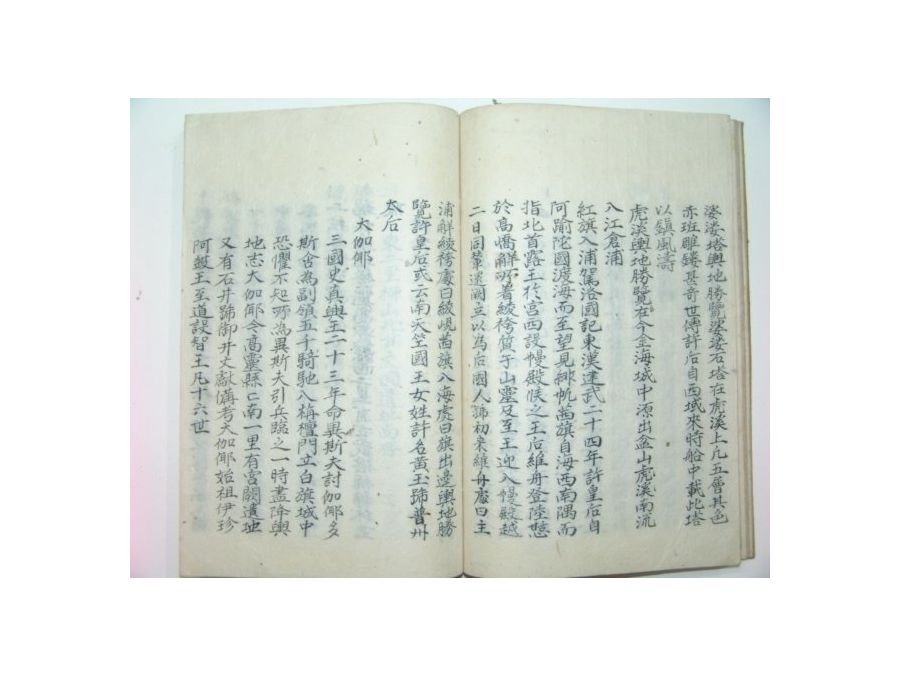 婆娑塔輿地勝覽婆娑石塔在虎溪上凡五層其色
赤班雕鏤甚奇世傳許后自西域來時船中載此塔
以鎮風濤
虎溪輿地勝覽在今金海城中源出盆山虎溪南流
入江倉浦
紅旗入浦駕洛國記東漢建武二十四年許皇后自
阿踰陀國渡海而至望見緋帆茜旗自海西南隅而
指北首露王於宮西設幔殿候之王后維舟登陸憇
於高嶠解所着綾袴質于山靈及至王迎入幔殿越
二日同輦還闕立以為后國人號初來維舟處曰主
浦解綾袴處曰綾峴茜旗入海處曰旗出邊輿地勝
覽許皇后或云南天竺國王女姓許名黃玉號普州
太后
大伽倻
三國史真興王二十三年命異斯夫討伽倻多
斯含為副領五千騎馳入栴檀門立白旗城中
恐懼不知所為異斯夫引兵臨之一時盡降輿
地志大伽倻今高靈縣亡南一里有宮闕遺址
又有石井號御井文獻備考大伽倻始祖伊珍
阿豉王至道設智王凡十六世